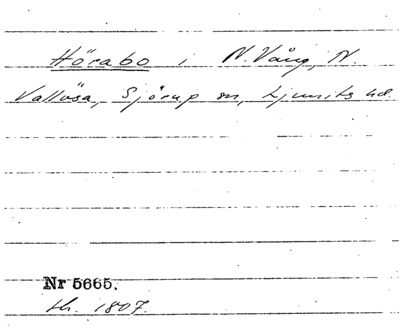 Hörabo i N. Vång, N.
Vallösa, Sjörup sn, Ljunits hd.
Nr 5665.
th. 1807.